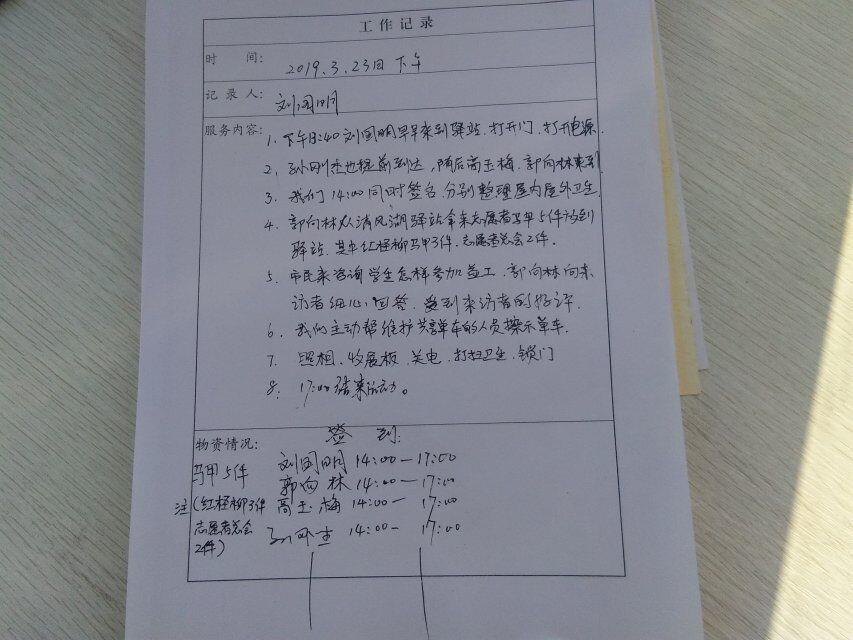 工作记录
时 间: 2019.3.23日下午
记录人: 刘国明
服务内容: 1. 下午13:40刘国明早早来到驿站.打开门.打开电源.
2. 孙刚杰也提前到达,随后高玉梅.郭向林来到
3. 我们14:00同时签名.分别整理屋内屋外卫生.
4. 郭向林从清风湖驿站拿来志愿者马甲5件放到
驿站.其中红柽柳马甲3件.志愿者总会2件.
5. 市民来咨询学生怎样参加益工.郭向林向来
访者细心回答.受到来访者的好评.
6. 我们主动帮维护共享单车的人员擦示单车.
7. 照相.收展板.关电.打扫卫生.锁门
8. 17:00结束活动。
物资情况: 签 到:
马甲5件 刘国明 14:00—17:00
郭向林 14:00—17:00
注(红柽柳3件 高玉梅 14:00— 17:00
志愿者总会
2件) 14:00— 17:00